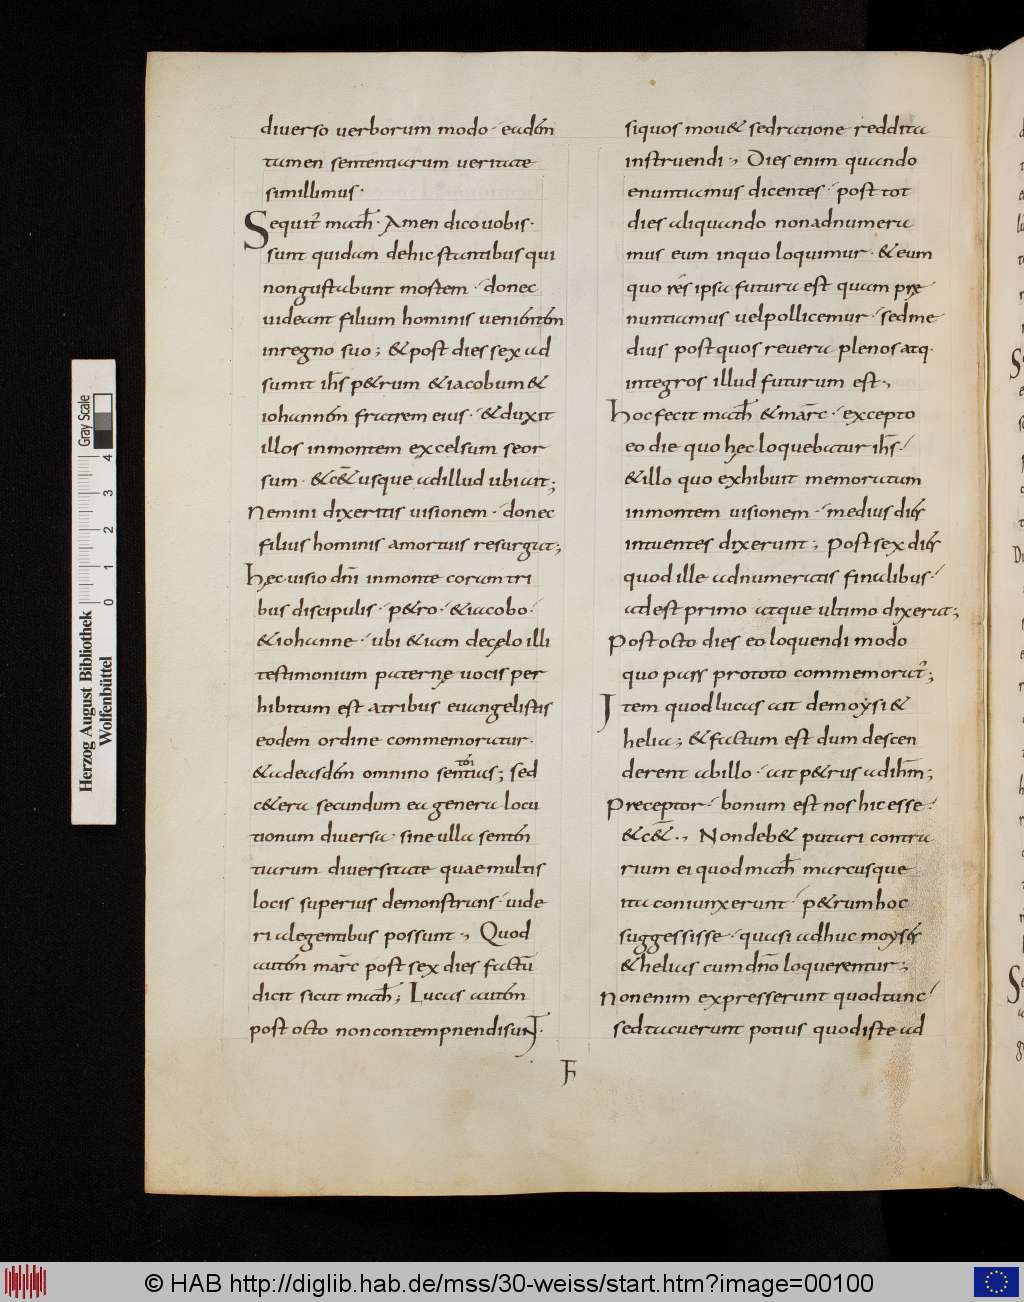 diuerso uerborum modo · eadē
tamen sententiarum ueritate
simillimus ·
Sequit̃ math̄ · Amen dico uobis ·
sunt quidam dehic stantibus qui
nongustabunt mortem · donec
uideant filium hominis uenientem
inregno suo ; & post dies sex ad
sumit ih̄s p&rum &iacobum &
iohannen fratrem eius · & duxit
illos inmontem excelsum seor
sum · & c&̄ usque adillud ubi ait ;
Nemini dixeritis uisionem · donec
filius hominis amortuis resurgat ;
hęc uisio dn̄i inmonte coram tri
bus discipulis · p&ro · &iacobo ·
&iohanne · ubi &iam decęlo illi
testimonium paternę uocis per
hibitum est atribus euangelistis
eodem ordine commemoratur ·
&adeasdem omnino sententias ; sed
c&era secundum ea genera locu
tionum diuersa · sine ulla senten
tiarum diuersitate quae multis
locis superius demonstrans · uide
ri alegentibus possunt ·, Quod
autem mar̄c post sex dies factū
dicit sicut math̄ ; Lucas autem
post octo noncontempnendi sunt ·
siquos mou& sedratione reddita
instruendi ·, Dies enim quando
enuntiamus dicentes · post tot
dies aliquando nonadnumera
mus eum inquo loquimur · &eum
quo res ipsa futura est quam prę
nuntiamus uelpollicemur · sedme
dius postquos reuera plenos atq·
integros illud futurum est ·,
hoc fecit math̄ & mar̄c · excepto
eo die quo hęc loquebatur ih̄s ·
&illo quo exhibuit memoratam
inmontem uisionem · medius dies
intuentes dixerunt ·, Post sex dies
quod ille adnumeratis finalibus ·
id est primo atque ultimo dixerat ;
Post octo dies eo loquendi modo
quo pars prototo commemorat̃ ;
Item quod lucas ait demoysi &
helia ; & factum est dum descen
derent abillo · ait p&rus adih̄m ;
Preceptor · bonum est nos hic esse ·
& c&̄ ·, Non deb& putari contra
rium ei quod math̄ marcusque
ita coniunxerunt · p&rum hoc
suggessisse · quasi adhuc moyses
&helias cum dn̄o loquerentur ·,
Nonenim expresserunt quodtunc ·
sed tacuerunt potius quodiste ad
Herzog August Bibliothek
Wolfenbüttel
0 1 2 3 4
Gray Scale
© HAB http://diglib.hab.de/mss/30-weiss/start.htm?image=00100